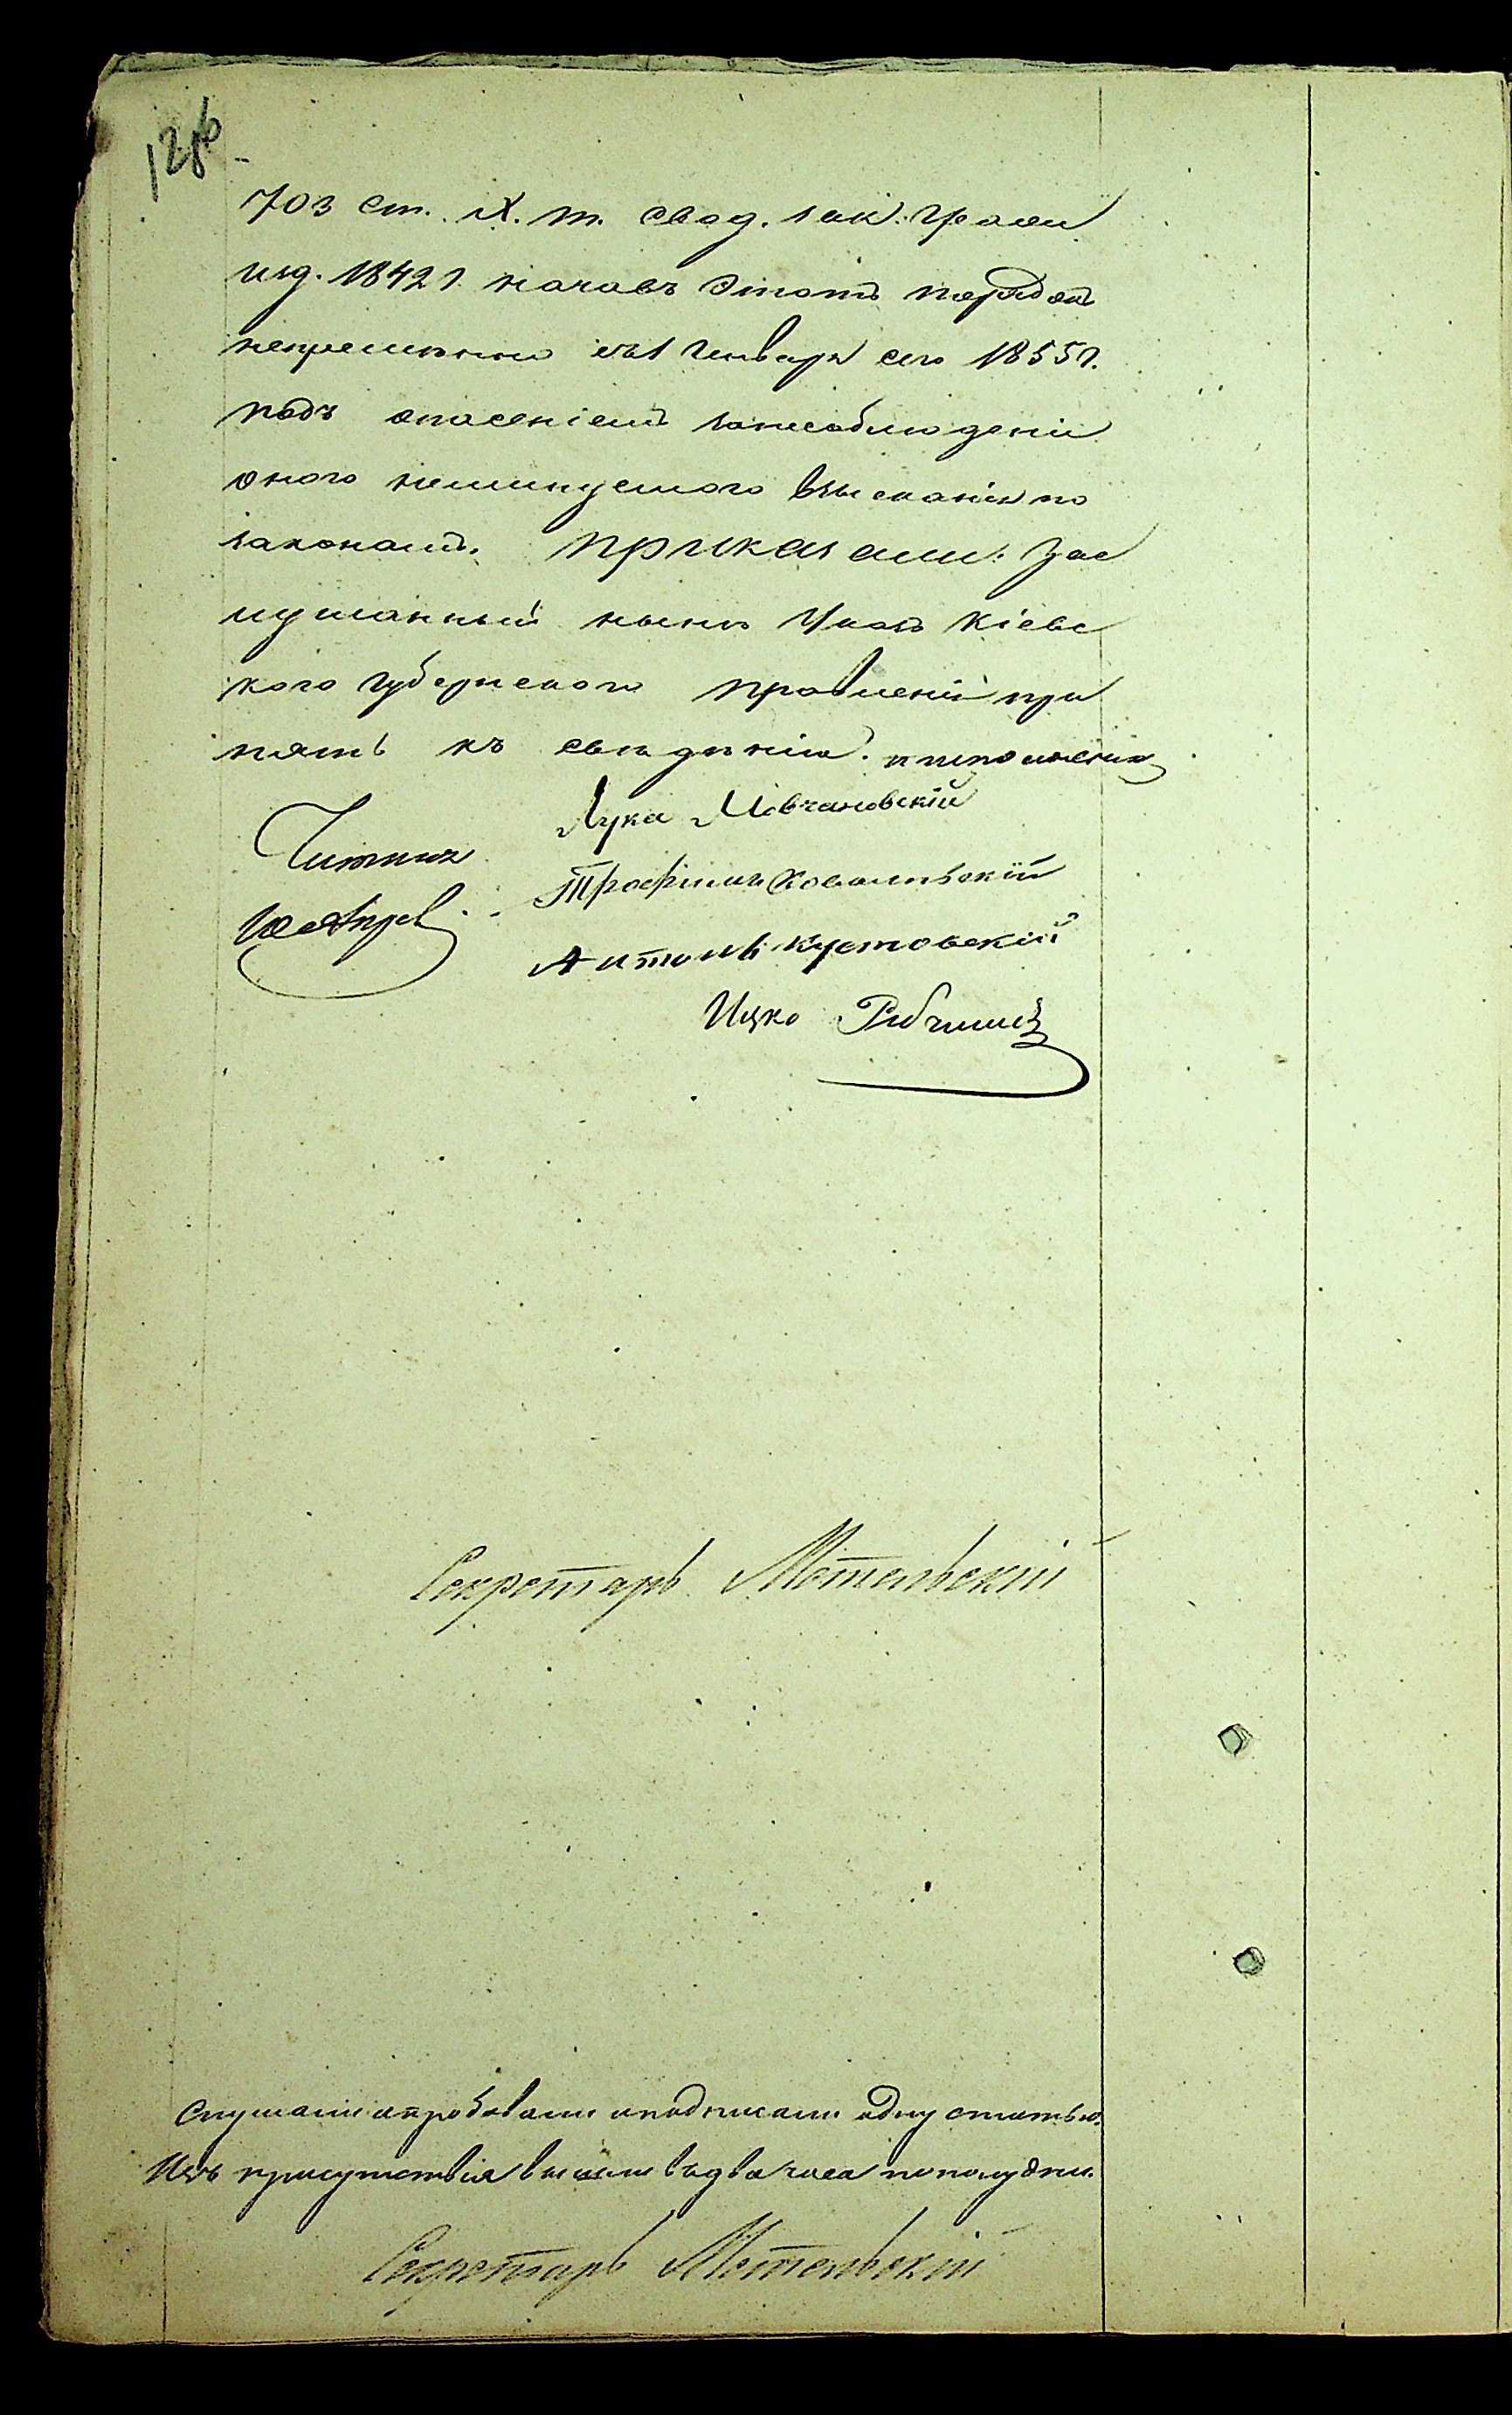 128б
703 ст. IX. т. свод. зак. граж
изд. 1842 г. начавъ этотъ порядокъ
непременно съ 1 Генваря сего 1855 г.
подъ опасеніемъ за несоблюденіи
оного неминуемого взысканія по
законамъ. Приказали: Зас
лушанный нынѣ Указъ Кіевс
кого Губернского правленія при
нять къ свѣденію. и исполненію
Лука Мовчановскій
Читалъ
Трофимъ Ковальскій
Антонъ Кустовскій
Ицко
Секретарь Мотельскій
Слушали апробовали и подписали одну статью.
Изъ присутствія вышли въ два часа пополудни.
Секретарь Мотельскій